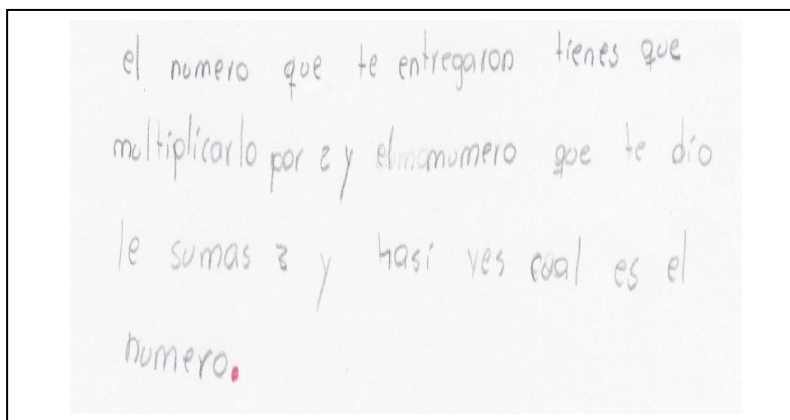 el numero que te entregaron tienes que
multiplicarlo por 2 y el numero que te dio
le sumas 3 y hasi ves cual es el
numero.